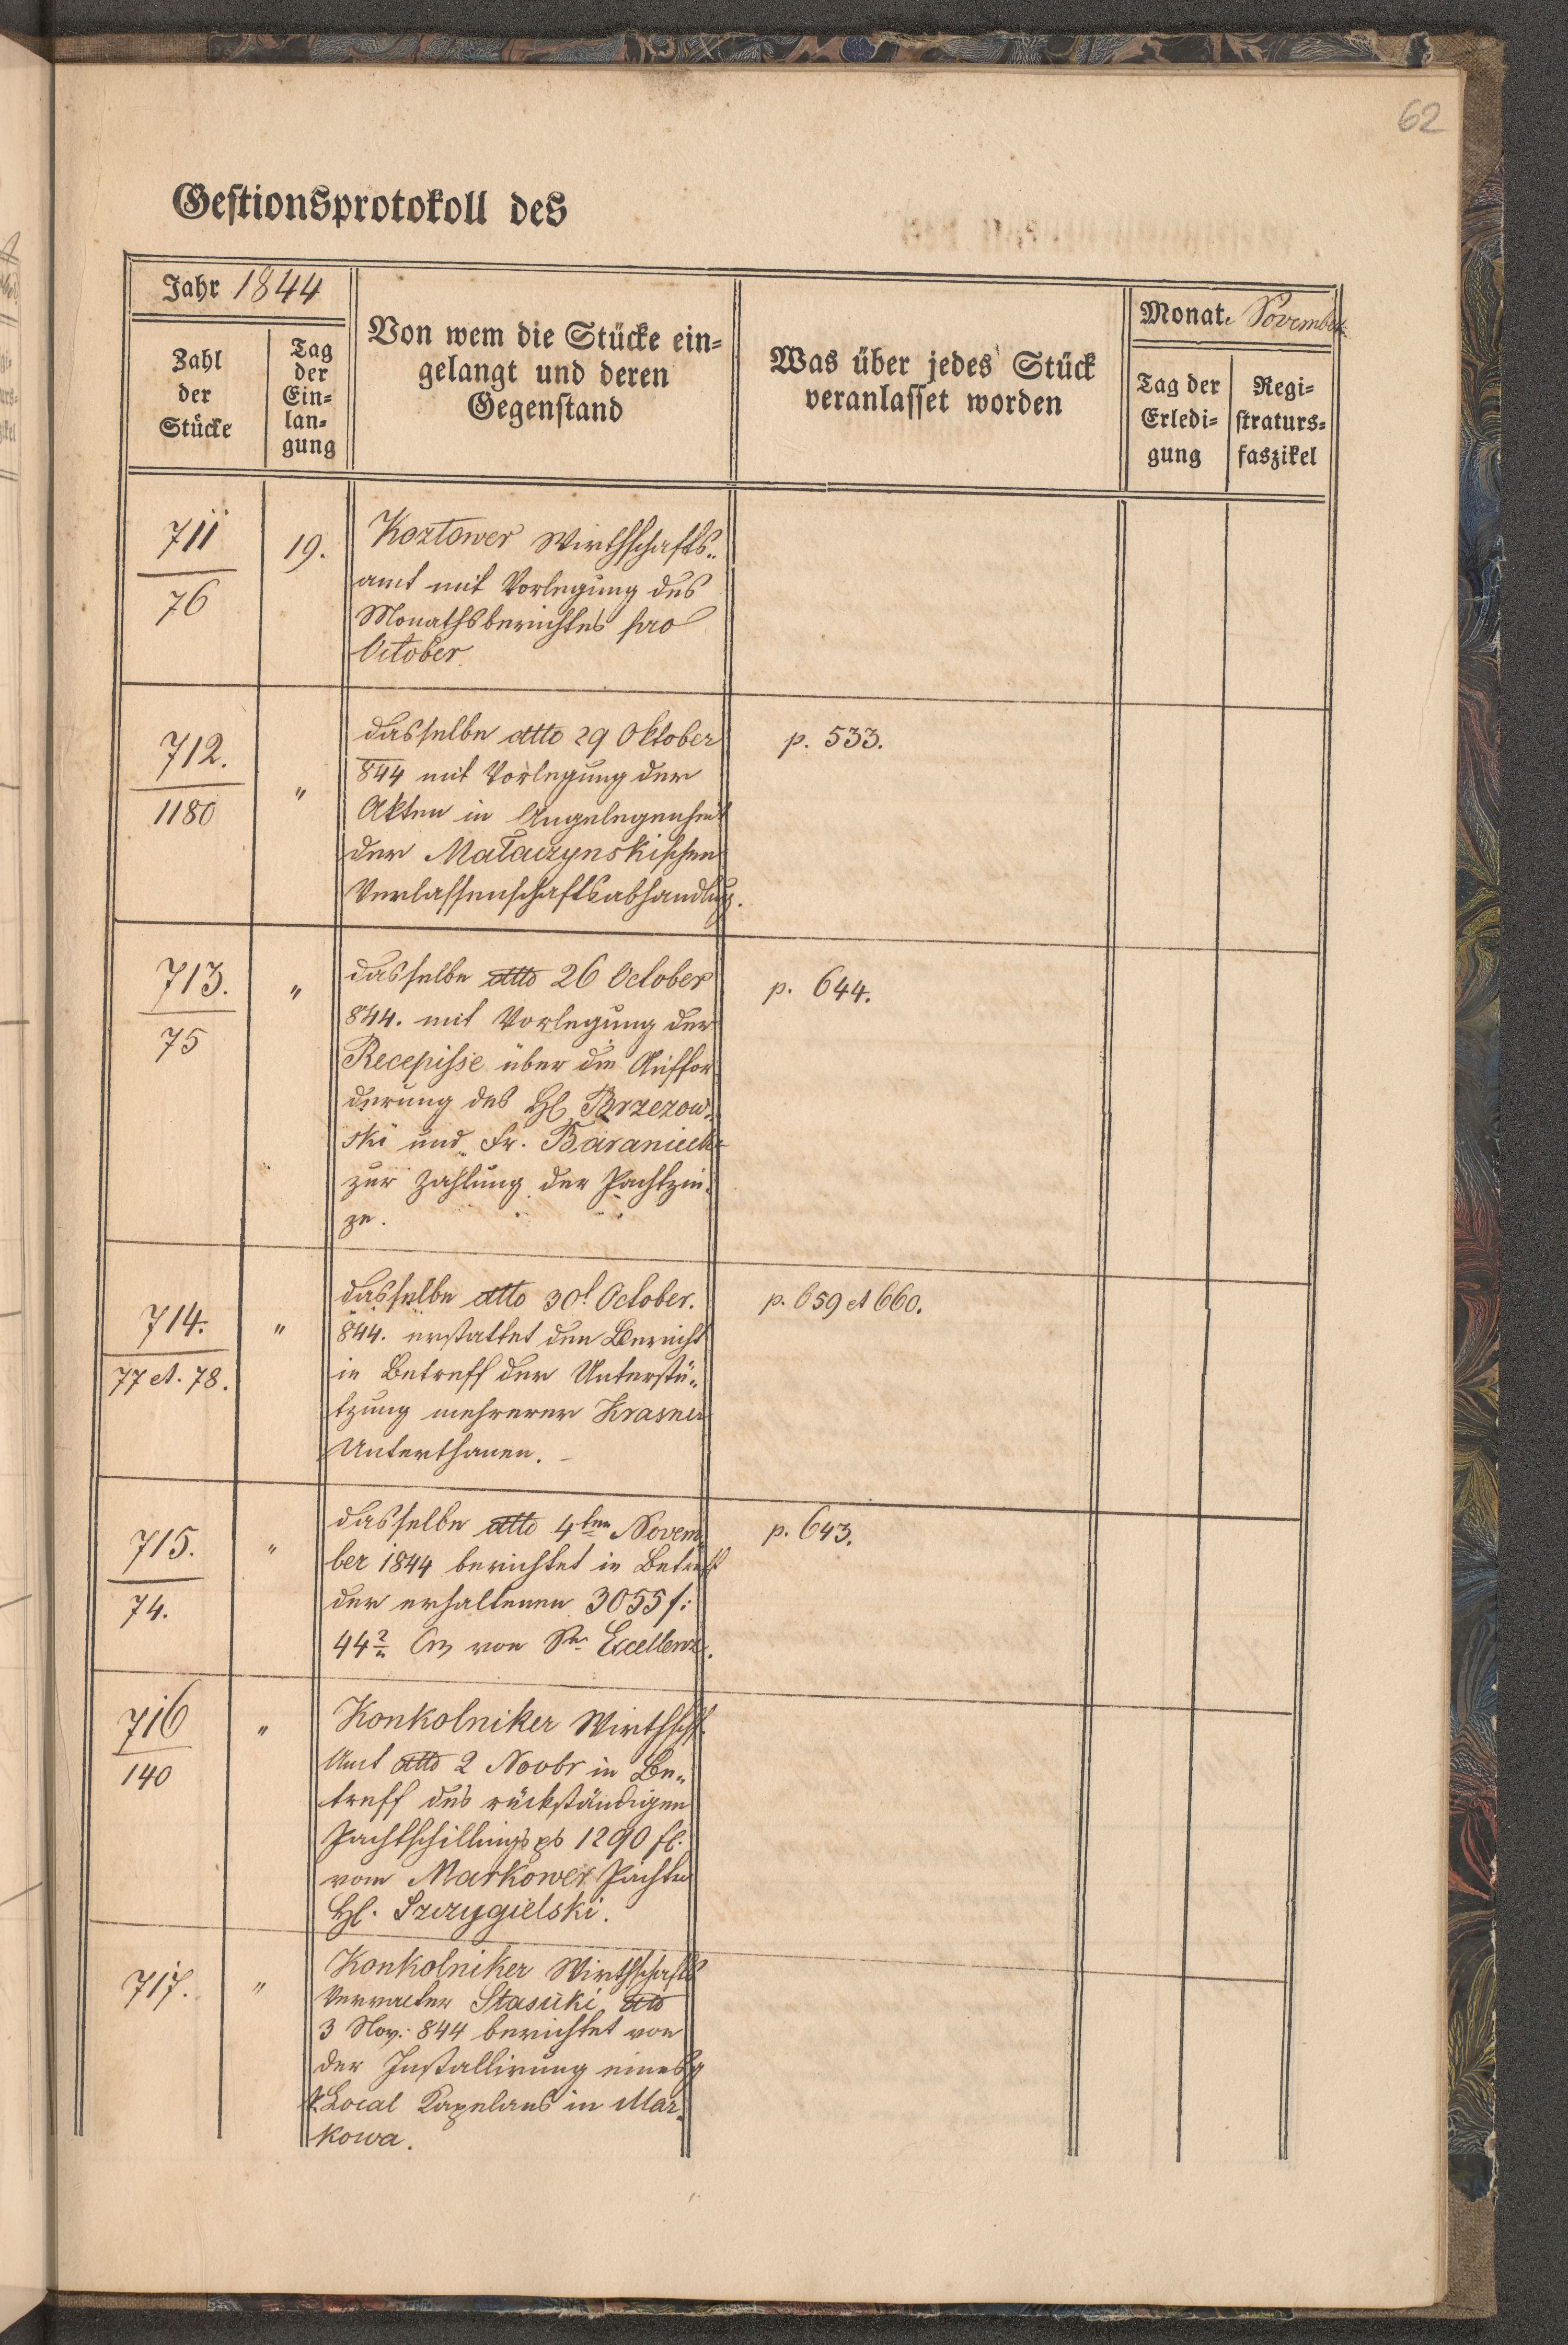 62
Gestionsprotokoll des
Jahr 1844
Zahl
der
Stücke
Tag
der
Ein=
lan=
gung
Von wem die Stücke ein=
gelangt und deren
Gegenstand
Was über jedes Stück
veranlasset worden
Monat November
Tag der
Erledi=
gung
Regi=
straturs=
faszikel
711
76
19.
Koztower Wirthschafts=
amt mit Vorlegung des
Monathsberichtes pro
October.
712.
1180
"
dasselbe dtto 29 Oktober
844 mit Vorlegung der
Akten in Angelegenheit
der Małaczynskischen
Verlassenschaftsabhandlung.
p. 533.
713.
75
"
dasselbe dtto 26 October
844. mit Vorlegung der
Recepisse über die Auffor
derung des H. Brzezow=
ski und Fr. Baraniecka
zur Zahlung der Pachtzin=
ze.
p. 644.
714.
77 et. 78.
"
dasselbe dtto 30t October.
844. erstattet den Bericht
in Betreff der Unterstü=
tzung mehrerer Krasner
Unterthanen. -
p. 659 et 660.
715.
74.
"
dasselbe dtto 4ten Novem=
ber 1844 berichtet in Betreff
der erhaltenen 3055 f:
44 von Sr Excellenz.
p. 643.
716
140
"
Konkolniker Wirthschf.
Amt dtto 2 Novbr in Be=
treff des rückständigen
Pachtschillings pr 1290 fl.
vom Markower Pächter
H. Szczygielski.
717.
"
Konkolniker Wirthschafts
Verwalter Stasicki dtto
3 Nov: 844 berichtet von
der Installirung eines
Local Kapelans in Mar=
kowa.